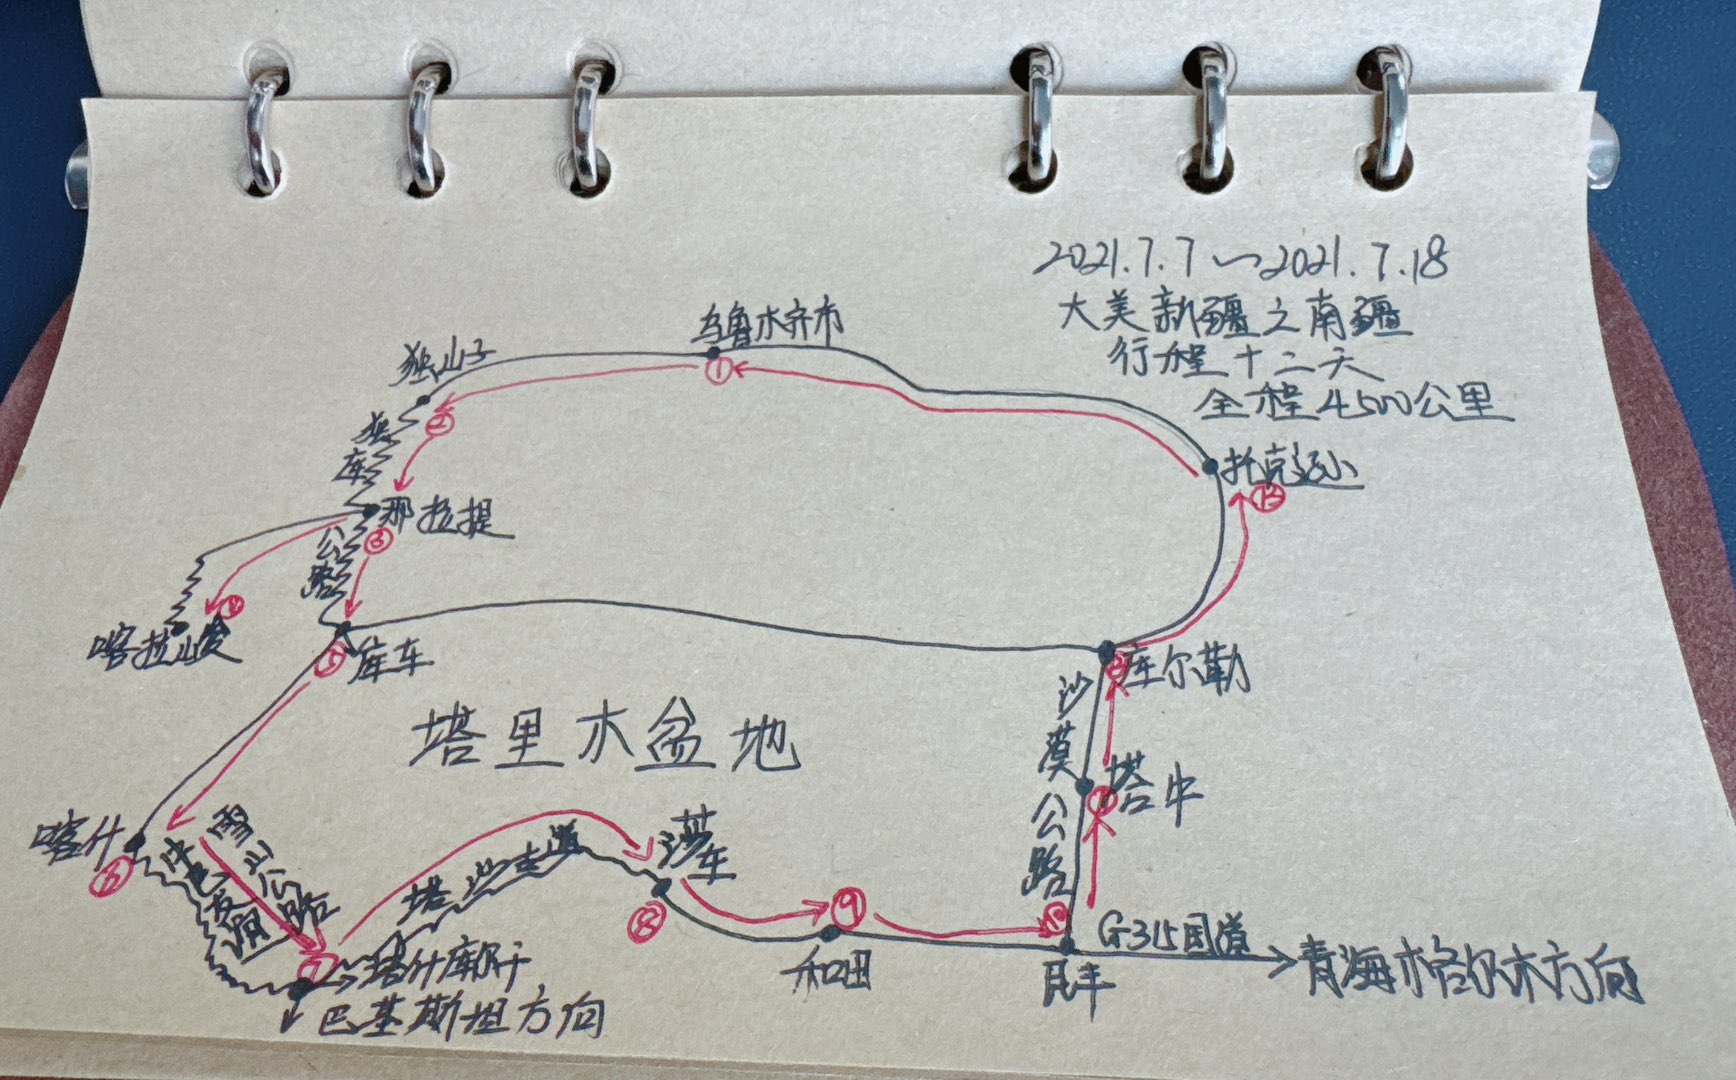 2021.7.7～2021.7.18
大美新疆之南疆
行程十二天
全程4500公里
乌鲁木齐市
①
独山子
②
独库公路
托克逊
⑬
那拉提
③
④
喀拉峻
库车
⑤
库尔勒
沙漠公路
塔里木盆地
塔中
喀什
⑥
雪山公路
中巴友谊
塔莎古道
莎车
⑧
⑨
和田
⑩
民丰
G315国道
青海格尔木方向
⑦
塔什库尔干
巴基斯坦方向